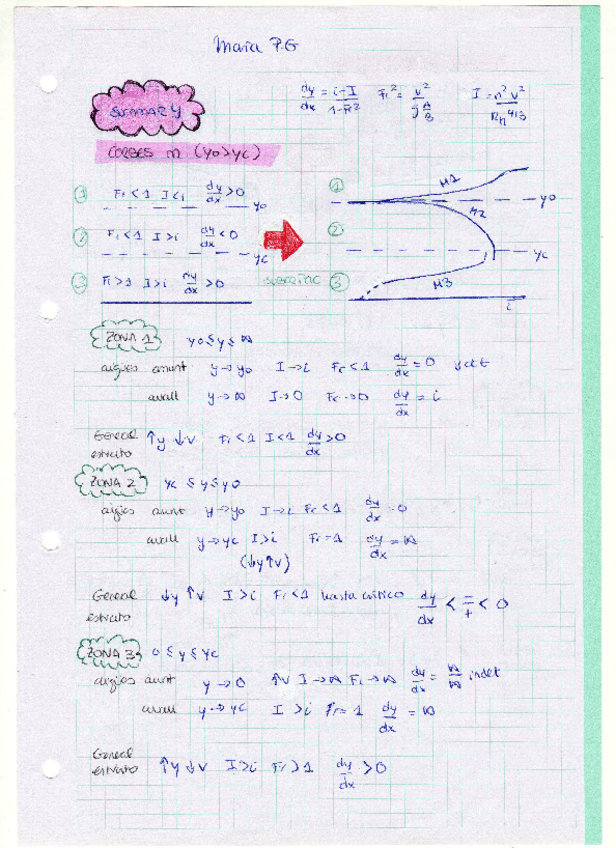 Maria P.G
SUMMARY
dy/dx = i-I/1-Fr² Fr² = v²/g A/B I = n² v²/Rh^4/3
CORBES M (yo>yc)
1 Fr<1 I<i dy/dx >0
yo
2 Fr<1 I>i dy/dx <0
yc
3 Fr>1 I>i dy/dx >0
1 M1
yo
M2
2
yc
3 M3
i
ZONA 1 yo≤y≤∞
aigües amunt y→yo I→i Fr<1 dy/dx = 0 y ctt
avall y→∞ I→0 Fr→0 dy/dx = i
General ↑y ↓v Fr<1 I<1 dy/dx >0
estrato
ZONA 2 yc≤y≤yo
aigües amunt y→yo I→i Fr<1 dy/dx = 0
avall y→yc I>i Fr=1 dy/dx = ∞
(↓y↑v)
General ↓y ↑v I>i Fr<1 hasta crítico dy/dx < -/+ < 0
estrato
ZONA 3 0≤y≤yc
aigües amunt y→0 ↑v I→∞ Fr→∞ dy/dx = ∞/∞ indet
avall y→yc I>i Fr=1 dy/dx = ∞
General
estrato ↑y ↓v I>i Fr>1 dy/dx >0